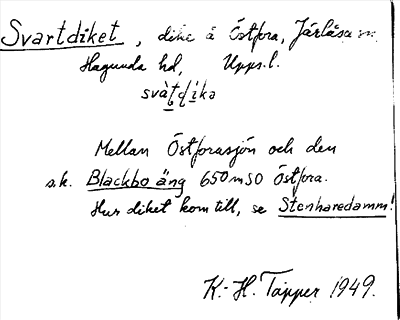 Svartdiket, dike å Östfora, Järlåsa sn.
Hagunda hd, Upps.l.
svàt̀dı̀kə
Mellan Östforasjön och den
s.k. Blackbo äng 650 m SO Östfora.
Hur diket kom till, se Stenharedamm!
K.-H. Tapper 1949.